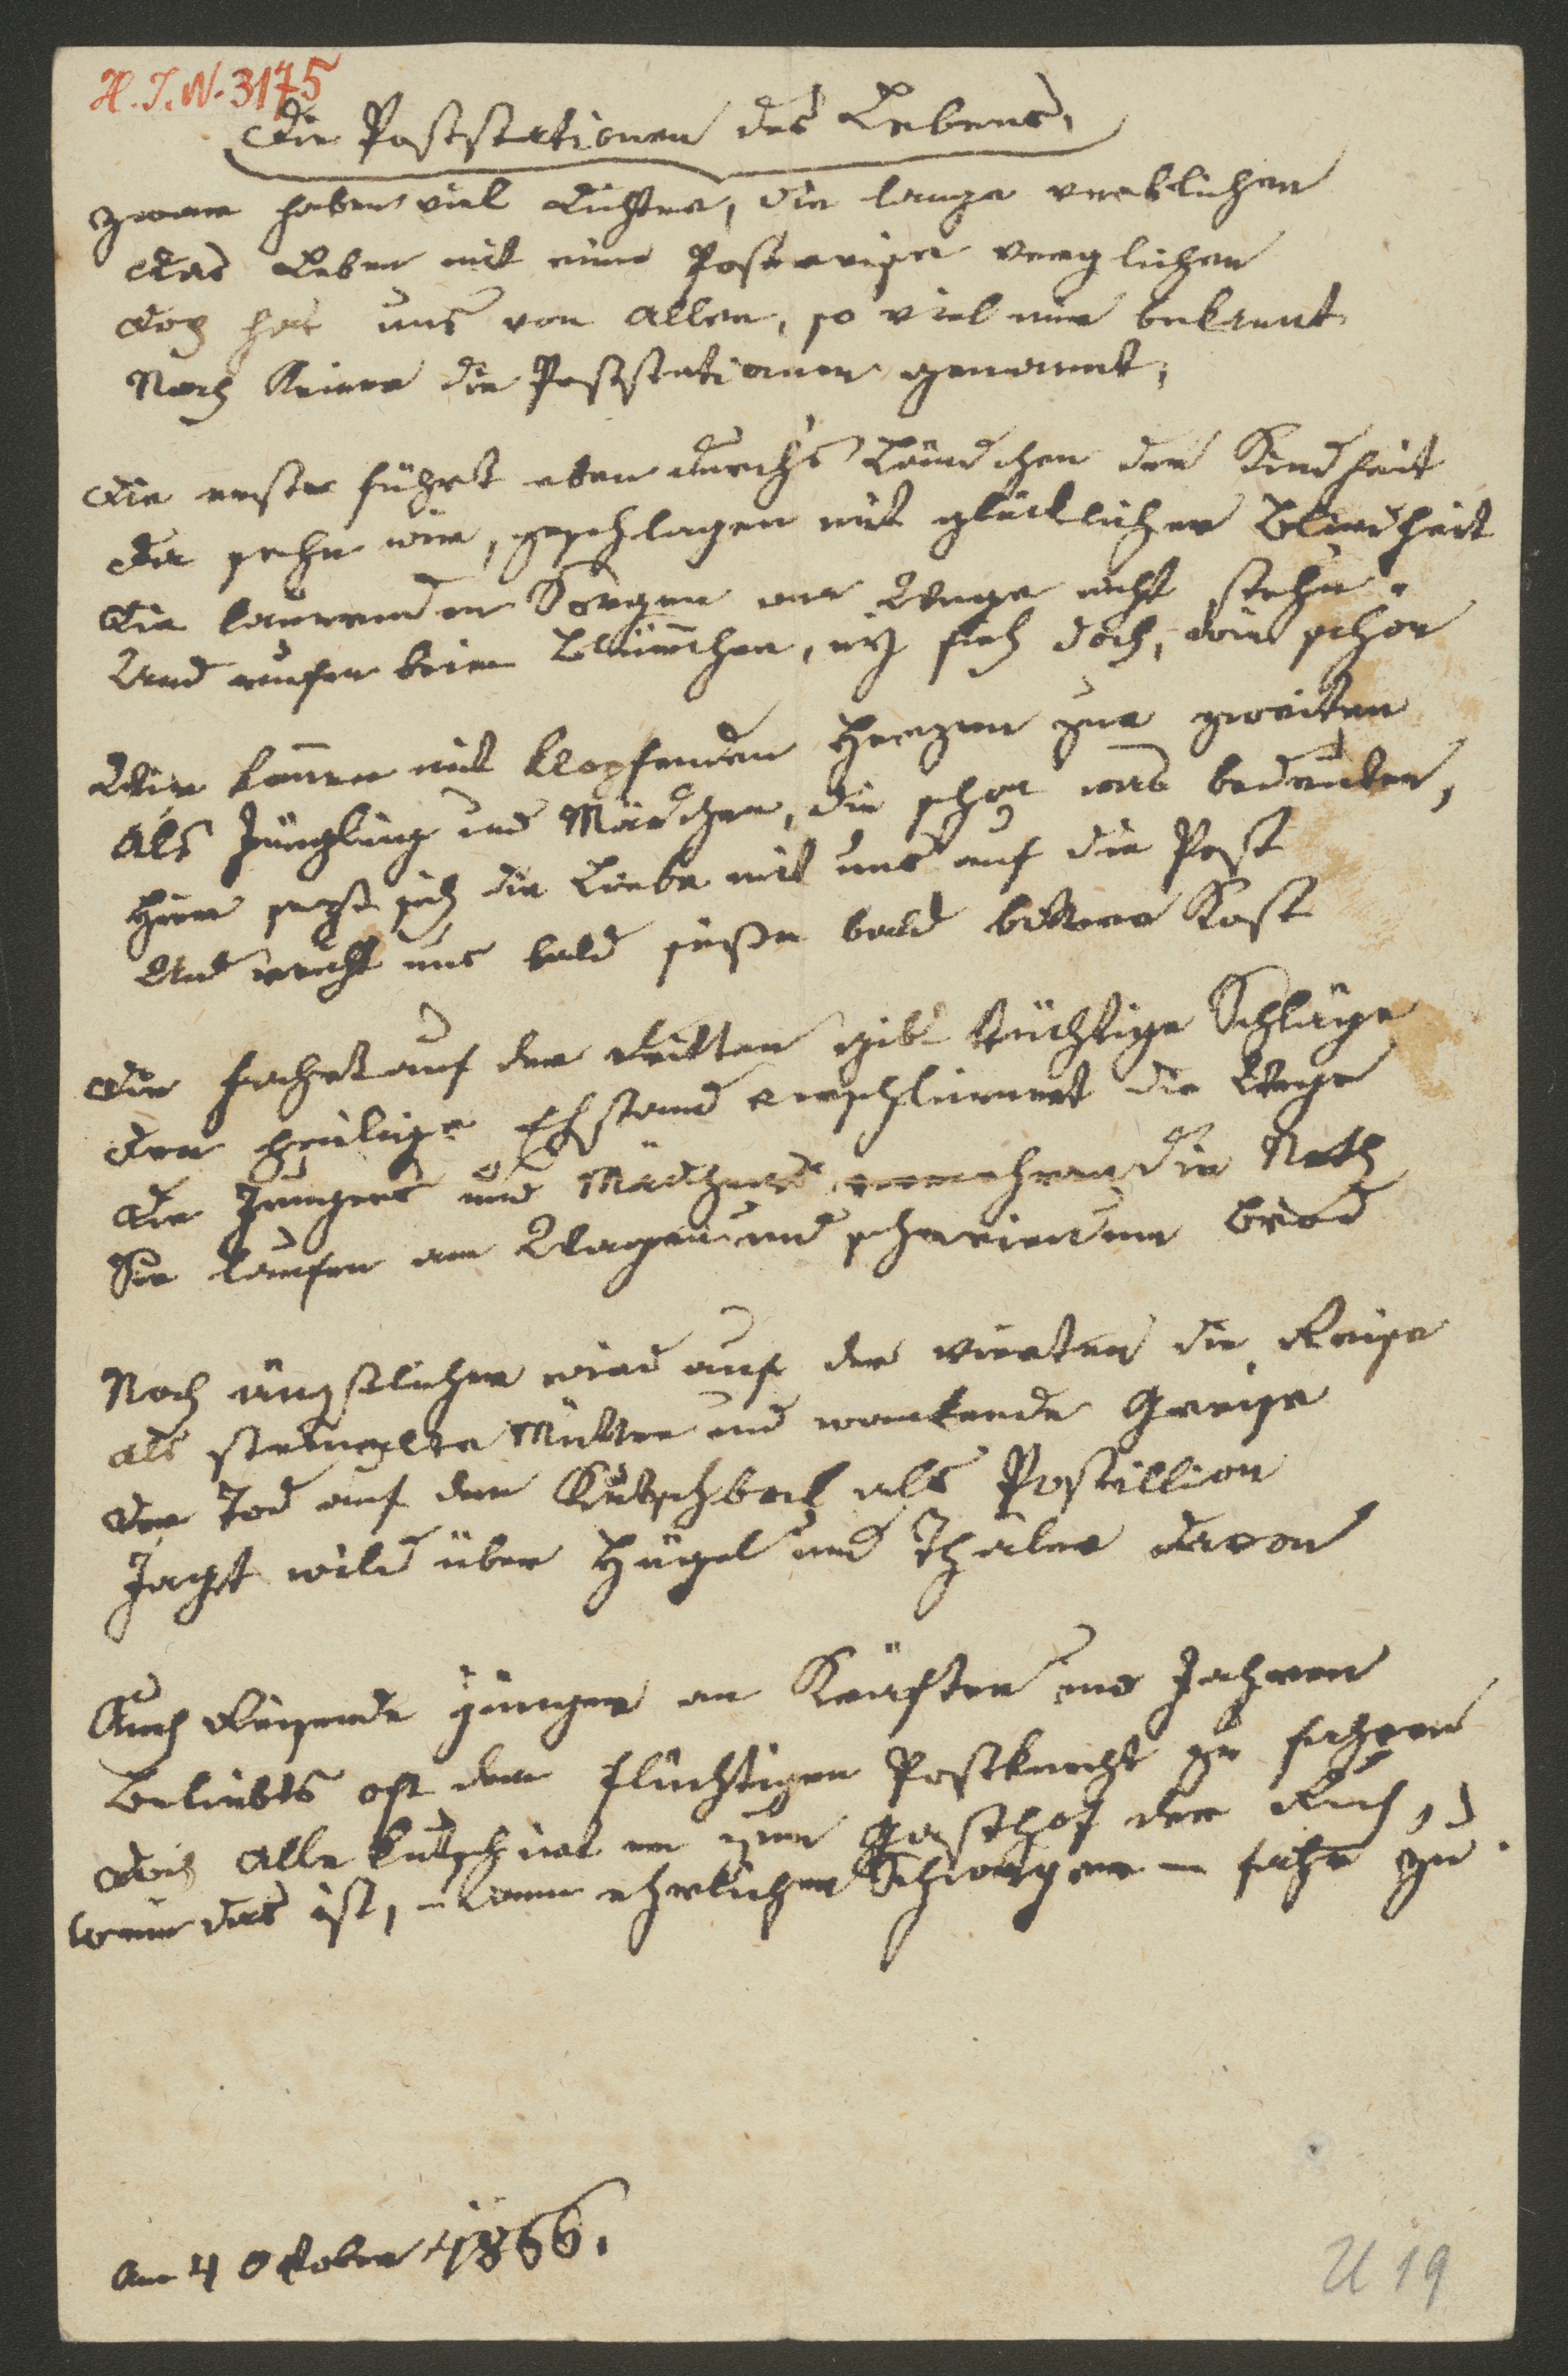 H. J. N. 3175
Die Poststationen des Lebens.
Zwar haben viel Dichter, die lange verblichen
Das Leben mit einer Postreise verglichen
Doch hat uns von allen, so viel mir bekannt
Noch Keiner die Poststationen genannt;
Die erste führet eben durch's Ländchen der Kindheit
Da sehn wir, geschlagen mit glücklicher Blindheit
Die laurenden Sorgen am Wege nicht stehn.
Und rufen beim Blümchen, ey sieh doch, wie schön
Wir komen mit klopfenden Herzen zur zweiten
Als Jüngling und Mädchen, die schon was bedeuten,
Hier setzt sich die Liebe mit uns auf die Post
Und reicht uns bald süße bald bittere Kost
Die Fahrt auf der dritten gibt tüchtige Schläge
Der heilige Ehstand verschlimmert die Wege
Die Jungens und Mädchens vermehren die Noth
Sie laufen am Wagen und schreien um Brod
Noch ängstlicher wird auf der vierten die Reise
Als steinalte Mütter und wankende Greise
Der Tod auf dem Kutschbock als Postillion
Jagt wild über Hügel und Thäler davon
Auch Reisende jünger an Kräften und Jahren
Beliebts oft dem flüchtigen Postknecht zu fahren
Doch alle kutschiret er zum Gasthof der Ruh,
Wenn das ist, – dann ehrlicher Schwager – fahr zu.
Am 4 October 1856.
U 19